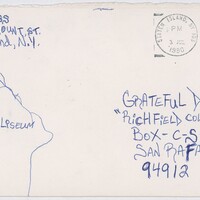 SS
OUNT ST.
ND, N.Y.
STATEN ISLAND, NY
PM
3 JUL
GRATEFUL D
"RICHFIELD COL
BOX-C-S
SAN RAFA
94912
LISEUM